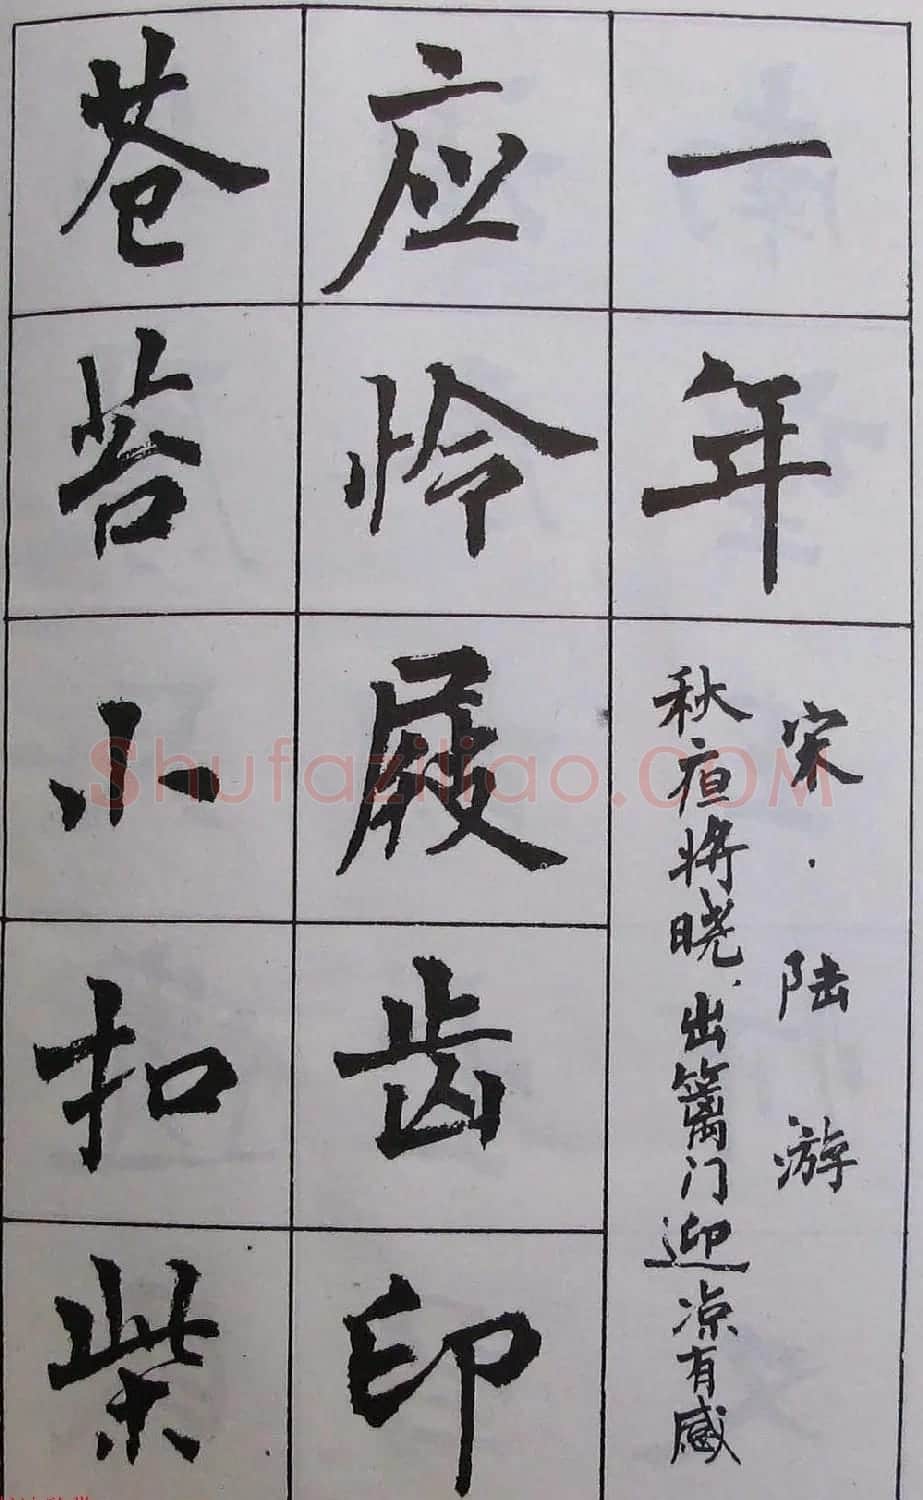 一年
宋·陆游
秋夜将晓、出篱门迎凉有感
应怜屐齿印
苍苔小扣柴
Shufaziliao.COM